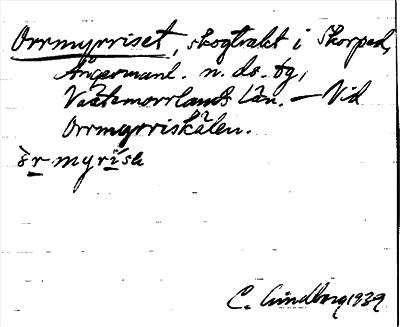 Orrmyrriset, skogtrakt i Skorped,
Ångermanl. n. ds. tg,
Västernorrlands län. — Vid
Orrmyrriskälen.
òr myrisə
C. Lindberg 1939